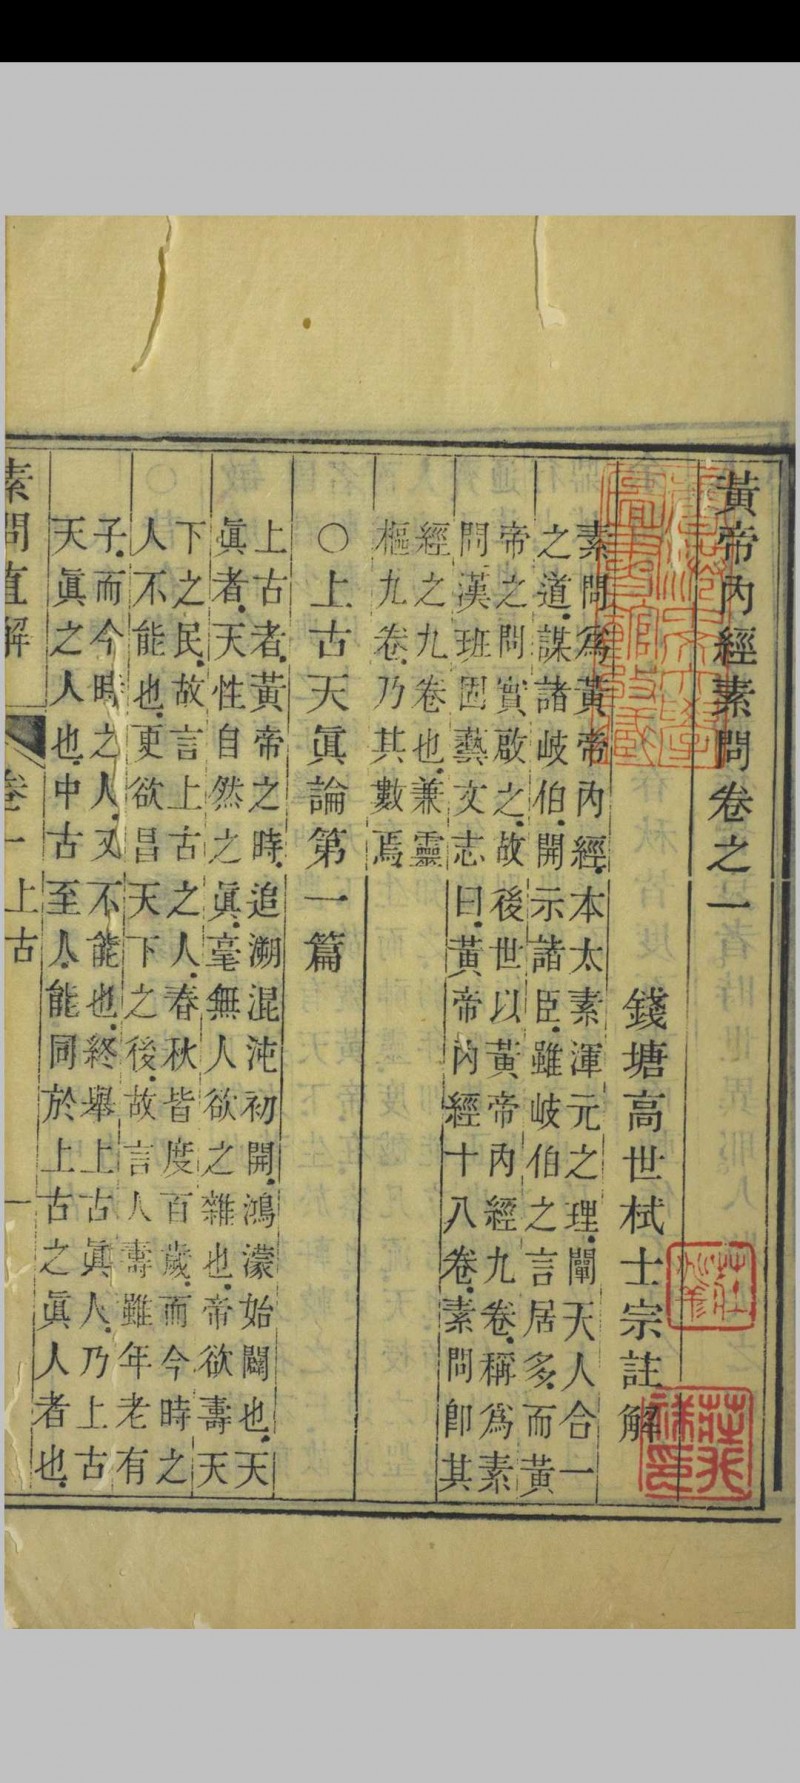 黃帝內經素問卷之一
錢塘高世栻士宗註解
素問爲黃帝內經本太素渾元之理闡天人合一
之道謀諸岐伯開示諸臣雖岐伯之言居多而黃
帝之問實啟之故後世以黃帝內經九卷稱爲素
問漢班固藝文志曰黃帝內經十八卷素問卽其
經之九卷也兼靈
樞九卷乃其數焉
○上古天眞論第一篇
上古者黃帝之時追溯混沌初開鴻濛始闢也天
眞者天性自然之眞毫無人欲之雜也帝欲壽天
下之民故言上古之人春秋皆度百歲而今時之
人不能也更欲昌天下之後故言人壽雖年老有
子而今時之人又不能也終舉上古眞人乃上古
天眞之人也中古至人能同於上古之眞人者也
素問直解
卷一
上古
一